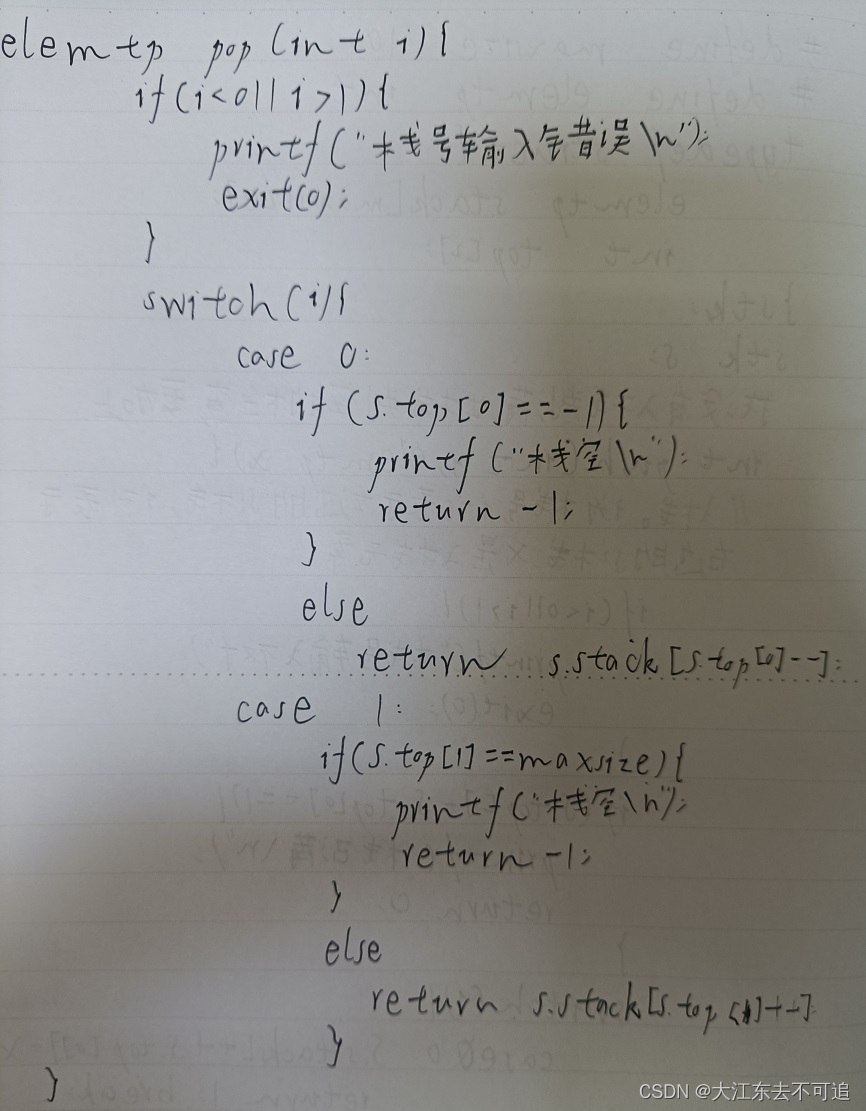 elemtp pop(int i){
if(i<0||i>1){
printf("栈号输入错误\n");
exit(0);
}
switch(i){
case 0:
if(s.top[0]==-1){
printf("栈空\n");
return -1;
}
else
return s.stack[s.top[0]--];
case 1:
if(s.top[1]==maxsize){
printf("栈空\n");
return -1;
}
else
return s.stack[s.top[1]++]
}
}
CSDN @大江东去不可追